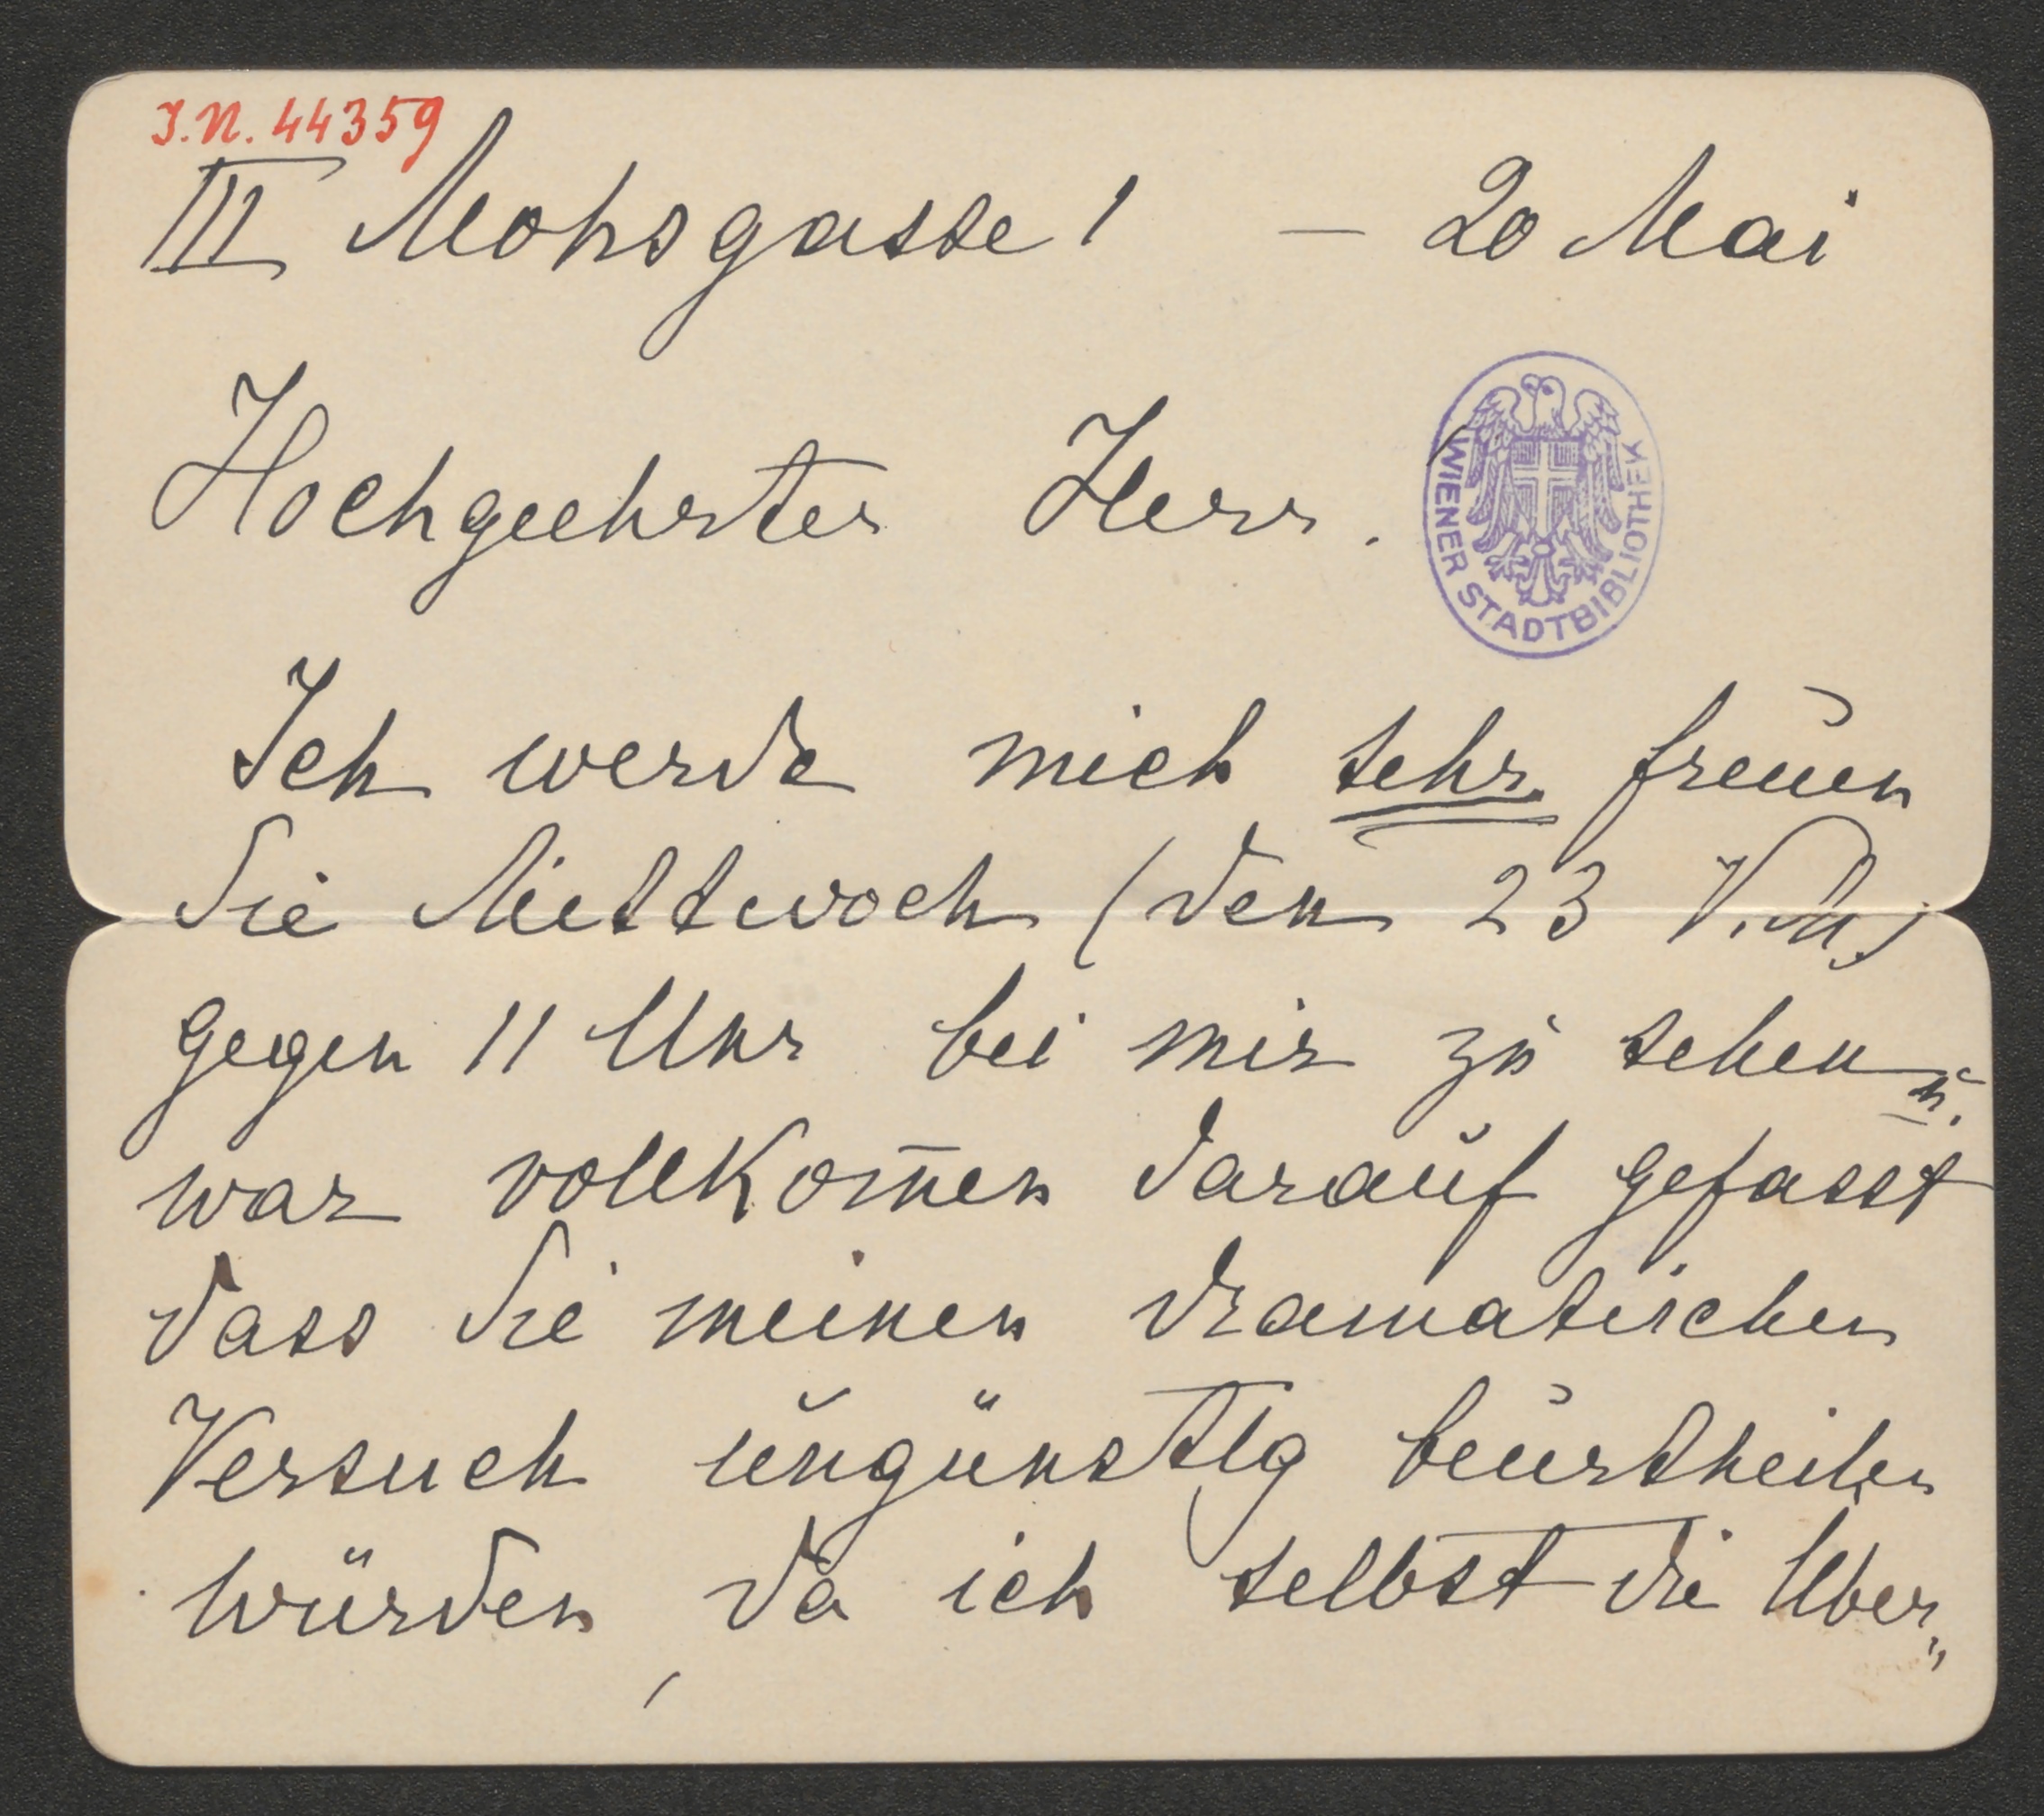 I.N. 44359
III Mohsgasse 1 – 20 Mai
Hochgeehrter Herr.
WIENER STADTBIBLIOTHEK
Ich werde mich sehr freuen
Sie Mittwoch (den 23 V. M.)
gegen 11 Uhr bei mir zu sehen u.
war vollkom̅en darauf gefasst
dass Sie meinen dramatischen
Versuch ungünstig beurtheilen
würden, da ich selbst die Uber„